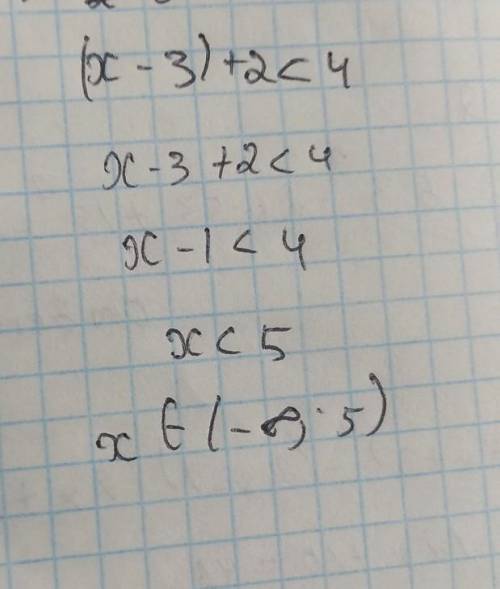 (x - 3) + 2 < 4
x - 3 + 2 < 4
x - 1 < 4
x < 5
x ∈ (-∞; 5)